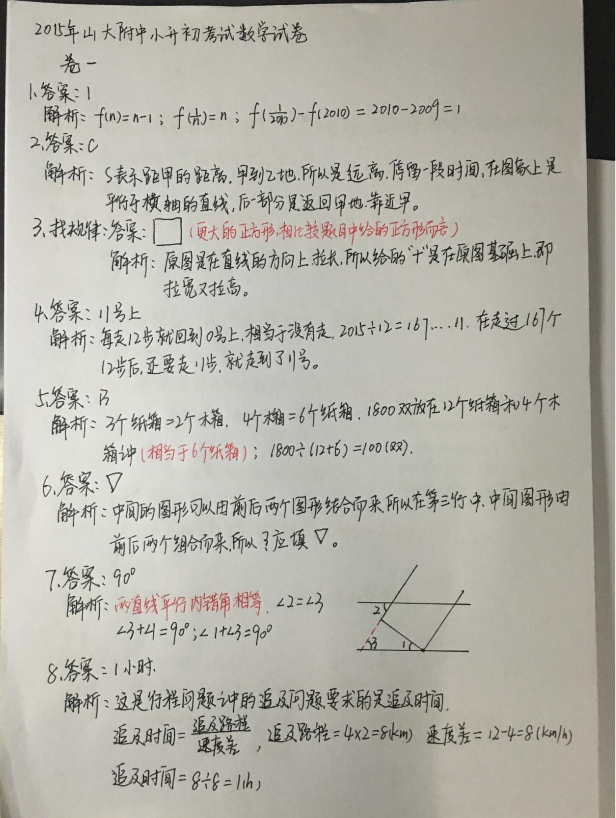 2015年山大附中小升初考试数学试卷
卷一
1.答案:1
解析: f(n)=n-1; f(1/n)=n; f(1/2010)-f(2010)=2010-2009=1
2.答案:C
解析: S表示距甲的距离,甲到乙地,所以是远离,停留一段时间,在图象上是
平行于横轴的直线,后一部分是返回甲地,靠近甲。
3.找规律:答案: □ (更大的正方形,相比较题目中给的正方形而言)
解析: 原图是在直线的方向上拉长,所以给的"十"是在原图基础上,即
拉宽又拉高。
4.答案:11号上
解析:每走12步就回到0号上,相当于没有走,2015÷12=167....11. 在走过167个
12步后,还要走11步,就走到了11号。
5.答案:B
解析: 3个纸箱=2个木箱. 4个木箱=6个纸箱. 1800双放在12个纸箱和4个木
箱中(相当于6个纸箱); 1800÷(12+6)=100(双).
6.答案:▽
解析:中间的图形可以由前后两个图形结合而来,所以在第三行中,中间图形由
前后两个组合而来,所以?应填▽。
7.答案:90°
解析:两直线平行内错角相等,∠2=∠3
∠3+∠1=90°;∠1+∠3=90°
2
3
1
8.答案:1小时.
解析:这是行程问题中的追及问题,要求的是追及时间.
追及时间=追及路程/速度差, 追及路程=4×2=8(km) 速度差=12-4=8(km/h)
追及时间=8÷8=1(h)